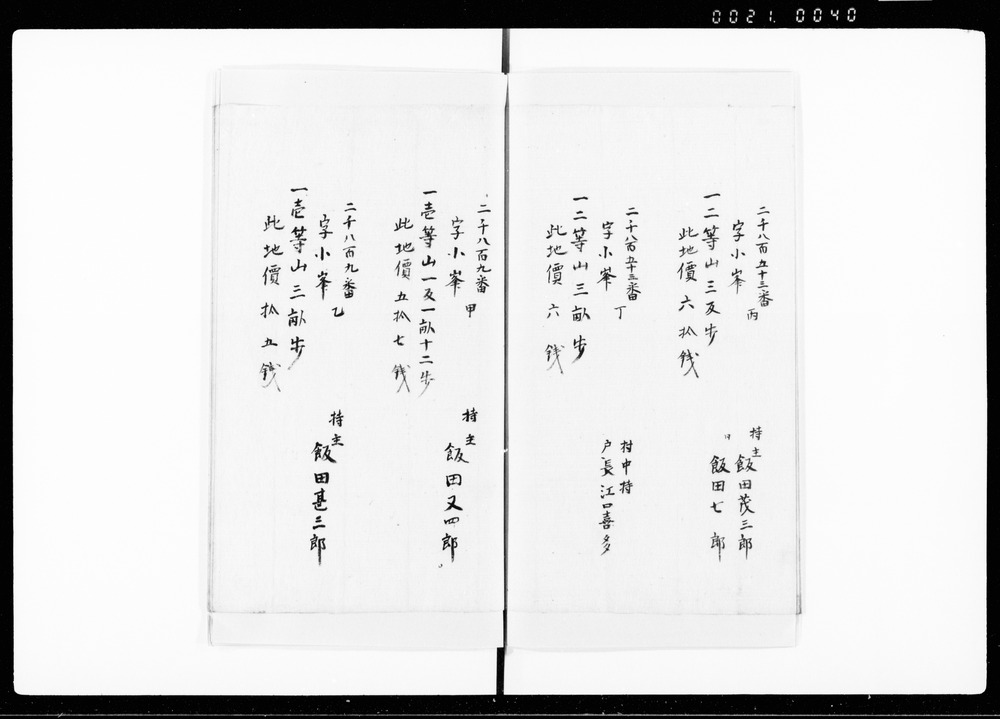 0021.0040
二千八百五十三番 丙
字小峯
一二等山三反歩
此地價 六拾銭
持主 飯田茂三郎
〃 飯田七郎
二千八百五十三番 丁
字小峯
一二等山三畝歩
此地價 六銭
村中持
戸長 江口喜多
二千八百九番 甲
字小峯
一壱等山一反一畝十二歩
此地價 五拾七銭
持主 飯田又四郎
二千八百九番 乙
字小峯
一壱等山三畝歩
此地價 拾五銭
持主 飯田甚三郎